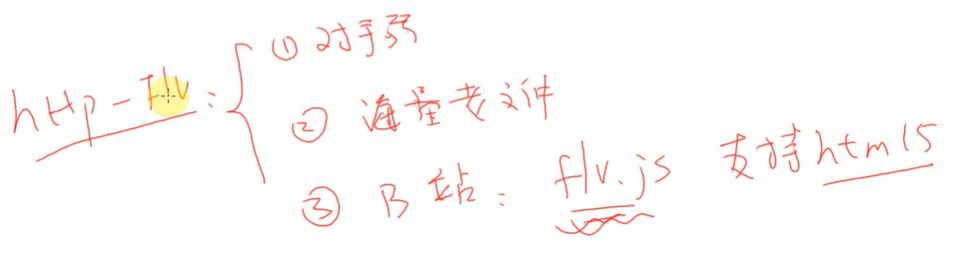 http-flv:
① 对手弱
② 海量老文件
③ B站: flv.js 支持html5